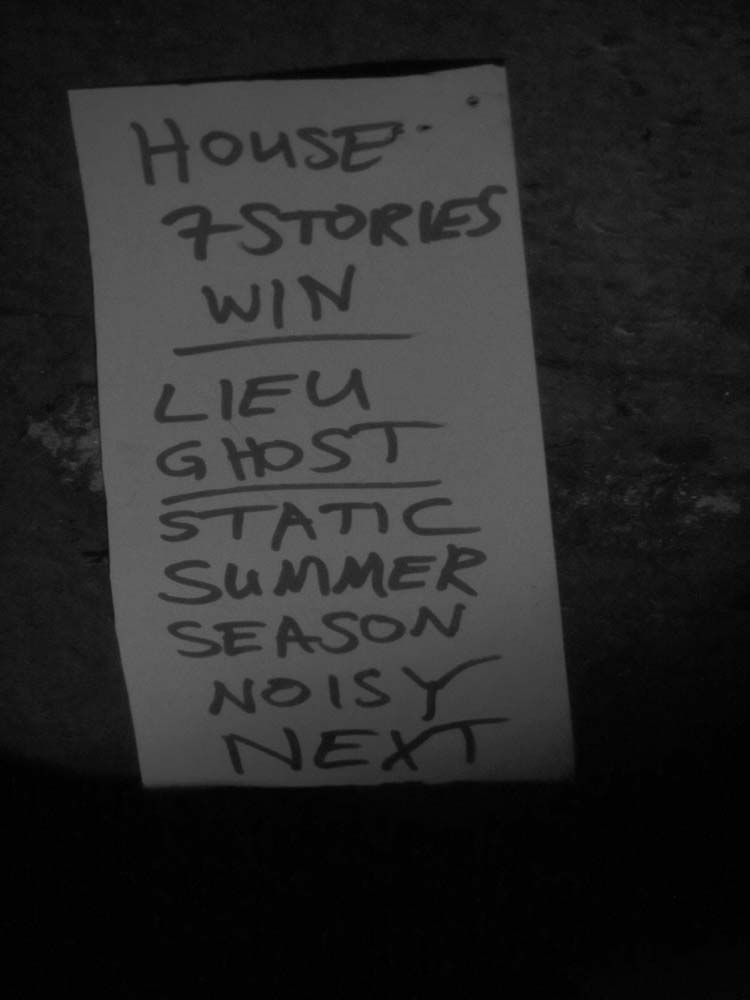 HOUSE
7 STORIES
WIN
LIEU
GHOST
STATIC
SUMMER
SEASON
NOISY
NEXT